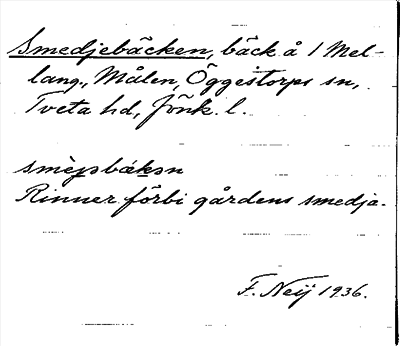 Smedjebäcken, bäck å 1 Mel-
lang., Målen, Öggestorps sn,
Tveta hd, Jönk. l.
smèjəsbákən
Rinner förbi gårdens smedja.
F. Neij 1936.